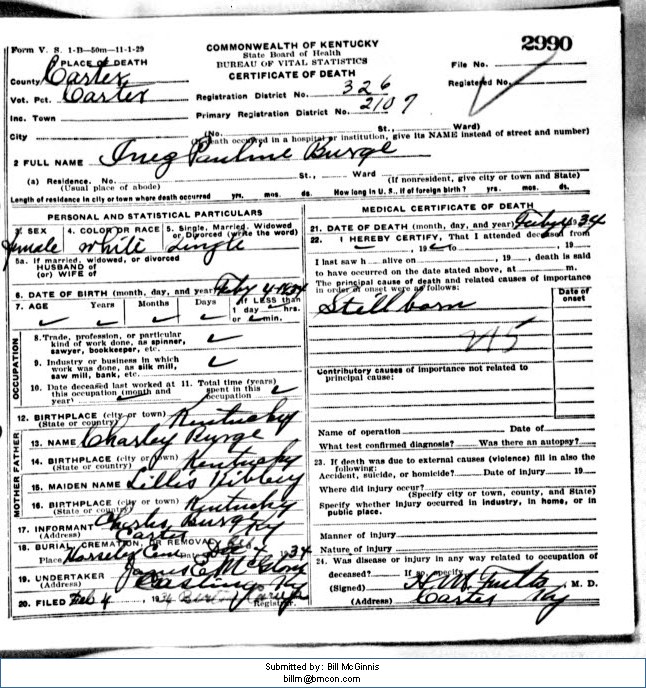 Form V. S. 1-D—50m—11-1-29
COMMONWEALTH OF KENTUCKY
State Board of Health
BUREAU OF VITAL STATISTICS
CERTIFICATE OF DEATH
2990
PLACE OF DEATH
County Carter
File No.
Vot. Pct. Carter
Registration District No. 326
Registered No.
Inc. Town
Primary Registration District No. 2107
City (No. St., Ward)
(If death occurred in a hospital or institution, give its NAME instead of street and number)
2 FULL NAME Ineg Pauline Burge
(a) Residence. No. St., Ward (If nonresident, give city or town and State)
(Usual place of abode)
Length of residence in city or town where death occurred yrs. mos. ds. How long in U. S., if of foreign birth? yrs. mos. ds.
PERSONAL AND STATISTICAL PARTICULARS
3. SEX 4. COLOR OR RACE 5. Single, Married, Widowed or Divorced (write the word)
female white Single
5a. If married, widowed, or divorced
HUSBAND of
(or) WIFE of
6. DATE OF BIRTH (month, day, and year) Feby 4-1934
7. AGE Years Months Days If LESS than 1 day hrs. or min.
OCCUPATION
8. Trade, profession, or particular kind of work done, as spinner, sawyer, bookkeeper, etc.
9. Industry or business in which work was done, as silk mill, saw mill, bank, etc.
10. Date deceased last worked at this occupation (month and year)
11. Total time (years) spent in this occupation
12. BIRTHPLACE (city or town) Kentucky
(State or country)
FATHER
13. NAME Charley Burge
14. BIRTHPLACE (city or town) Kentucky
(State or country)
MOTHER
15. MAIDEN NAME Lillis
16. BIRTHPLACE (city or town) Kentucky
(State or country)
17. INFORMANT Charley Burge
(Address) Carter Ky
18. BURIAL, CREMATION, OR REMOVAL
Place Cem Date 4 1934
19. UNDERTAKER James
(Address) Ky
20. FILED Feb 4, 1934 Registrar.
MEDICAL CERTIFICATE OF DEATH
21. DATE OF DEATH (month, day, and year) Feby 4 1934
22. I HEREBY CERTIFY, That I attended deceased from
, 19 to , 19
I last saw h alive on , 19 , death is said
to have occurred on the date stated above, at m.
The principal cause of death and related causes of importance in order of onset were as follows:
Date of onset
Stillborn
215
Contributory causes of importance not related to principal cause:
Name of operation Date of
What test confirmed diagnosis? Was there an autopsy?
23. If death was due to external causes (violence) fill in also the following:
Accident, suicide, or homicide? Date of injury 19
Where did injury occur?
(Specify city or town, county, and State)
Specify whether injury occurred in industry, in home, or in public place.
Manner of injury
Nature of injury
24. Was disease or injury in any way related to occupation of deceased? If so, specify
(Signed) M. D.
(Address) Carter Ky
Submitted by: Bill McGinnis
billm@bmcon.com